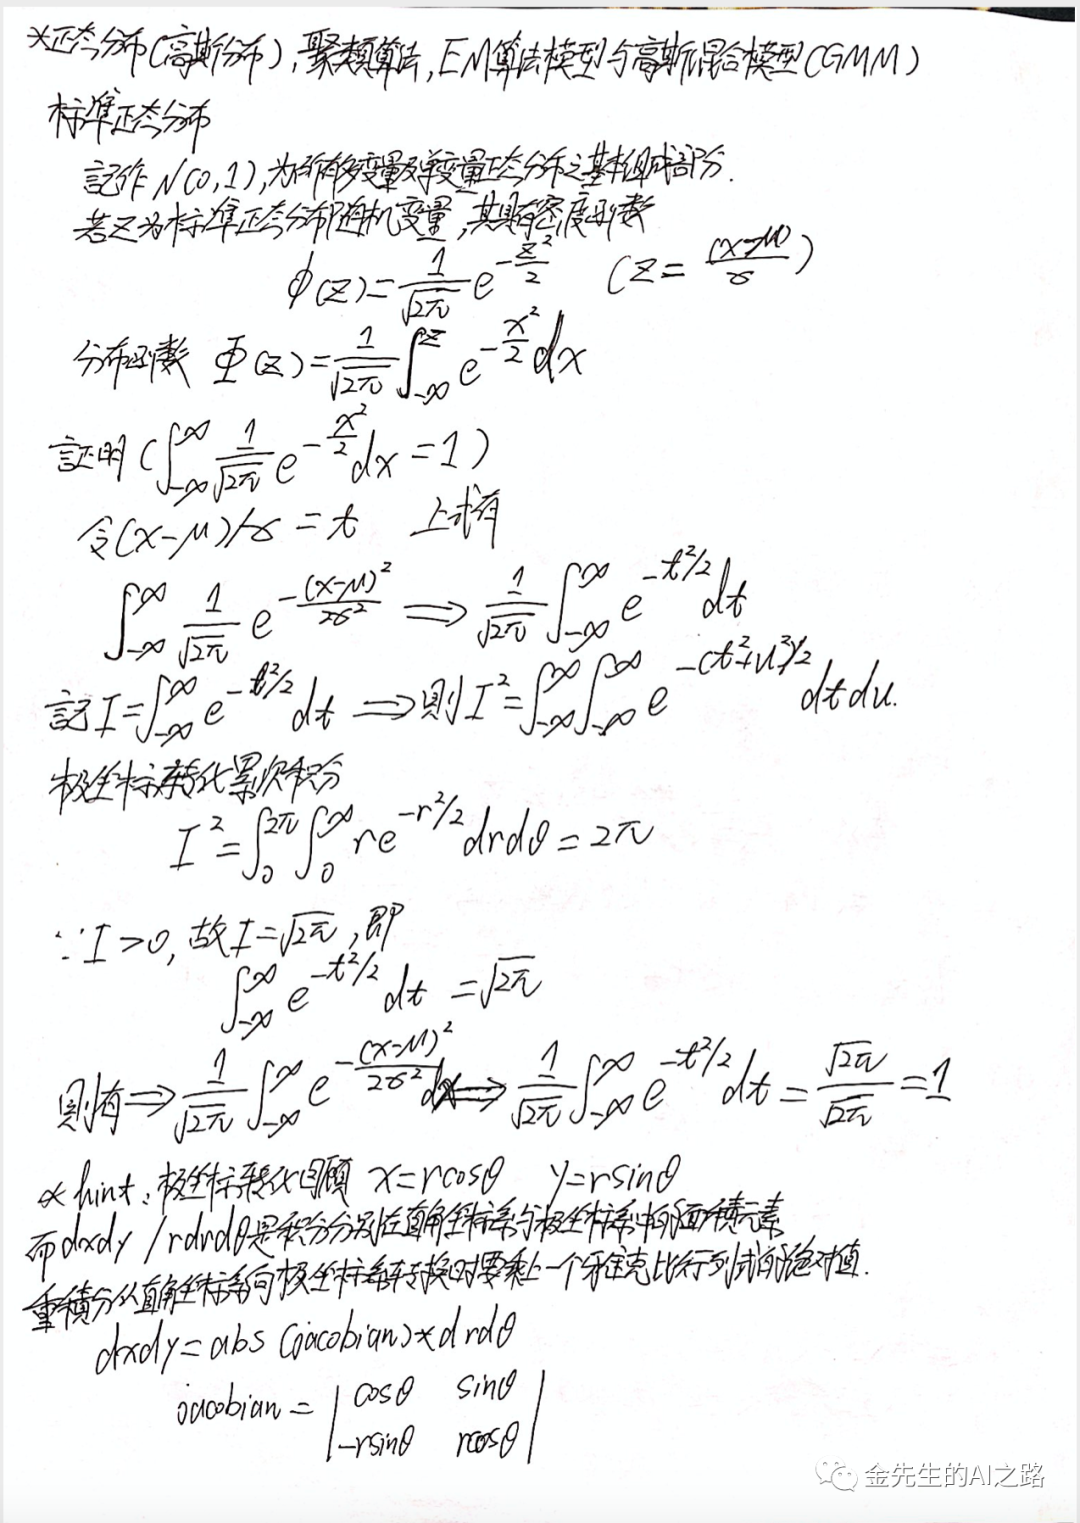 *正态分布(高斯分布),聚類算法,EM算法模型与高斯混合模型(GMM)
标準正态分布
記作 N(0,1),为所有多变量及单变量正态分布之基本组成部分.
若Z为标準正态分布随机变量,其具有密度函数
ϕ(z)=1/√2π e^(-z²/2) (z=(x-μ)/σ)
分布函數 Φ(z)=1/√2π ∫_-∞^z e^(-x²/2) dx
証明(∫_-∞^∞ 1/√2π e^(-x²/2) dx=1)
令(x-μ)/σ=t 上式有
∫_-∞^∞ 1/√2π e^(-(x-μ)²/2σ²) ⟹ 1/√2π ∫_-∞^∞ e^(-t²/2) dt
記I=∫_-∞^∞ e^(-t²/2) dt ⟹則I²=∫_-∞^∞∫_-∞^∞ e^(-(t²+u²)/2) dtdu.
极坐标转化累次积分
I²=∫_0^2π∫_0^∞ re^(-r²/2) drdθ=2π
∵I>0,故I=√2π,即
∫_-∞^∞ e^(-t²/2) dt=√2π
則有⟹1/√2π ∫_-∞^∞ e^(-(x-μ)²/2σ²) dx⟹1/√2π ∫_-∞^∞ e^(-t²/2) dt=√2π/√2π=1
* hint:极坐标转化回顧 x=rcosθ y=rsinθ
而dxdy/rdrdθ是积分分别在直角坐标系与极坐标系中的面積元素
重積分从直角坐标系向极坐标系转换时要乘上一个雅克比行列式的絶对值.
dxdy=abs(jacobian)*drdθ
jacobian=|cosθ sinθ|
|-rsinθ rcosθ|
金先生的AI之路